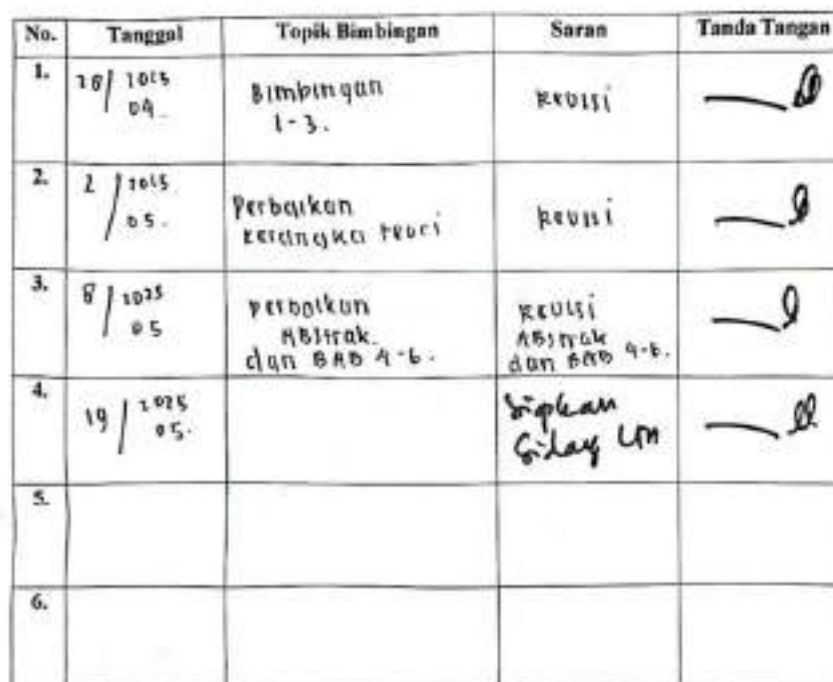 No. Tanggal Topik Bimbingan Saran Tanda Tangan
1. 28/2025 04 Bimbingan 1-3. Revisi
2. 2/2025 05. Perbaikan kerangka teori Revisi
3. 8/2025 05 perbaikan ABstrak dan BAB 4-6. Revisi ABstrak dan BAB 4-6.
4. 19/2025 05. Siapkan Sidang
5.
6.